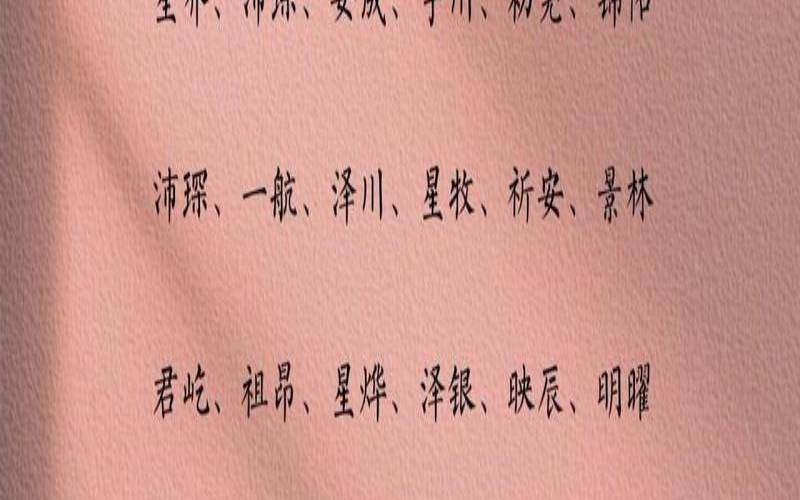 沛琛、
沛琛、一航、泽川、星牧、祈安、景林
君屹、祖昂、星烨、泽银、映辰、明曜